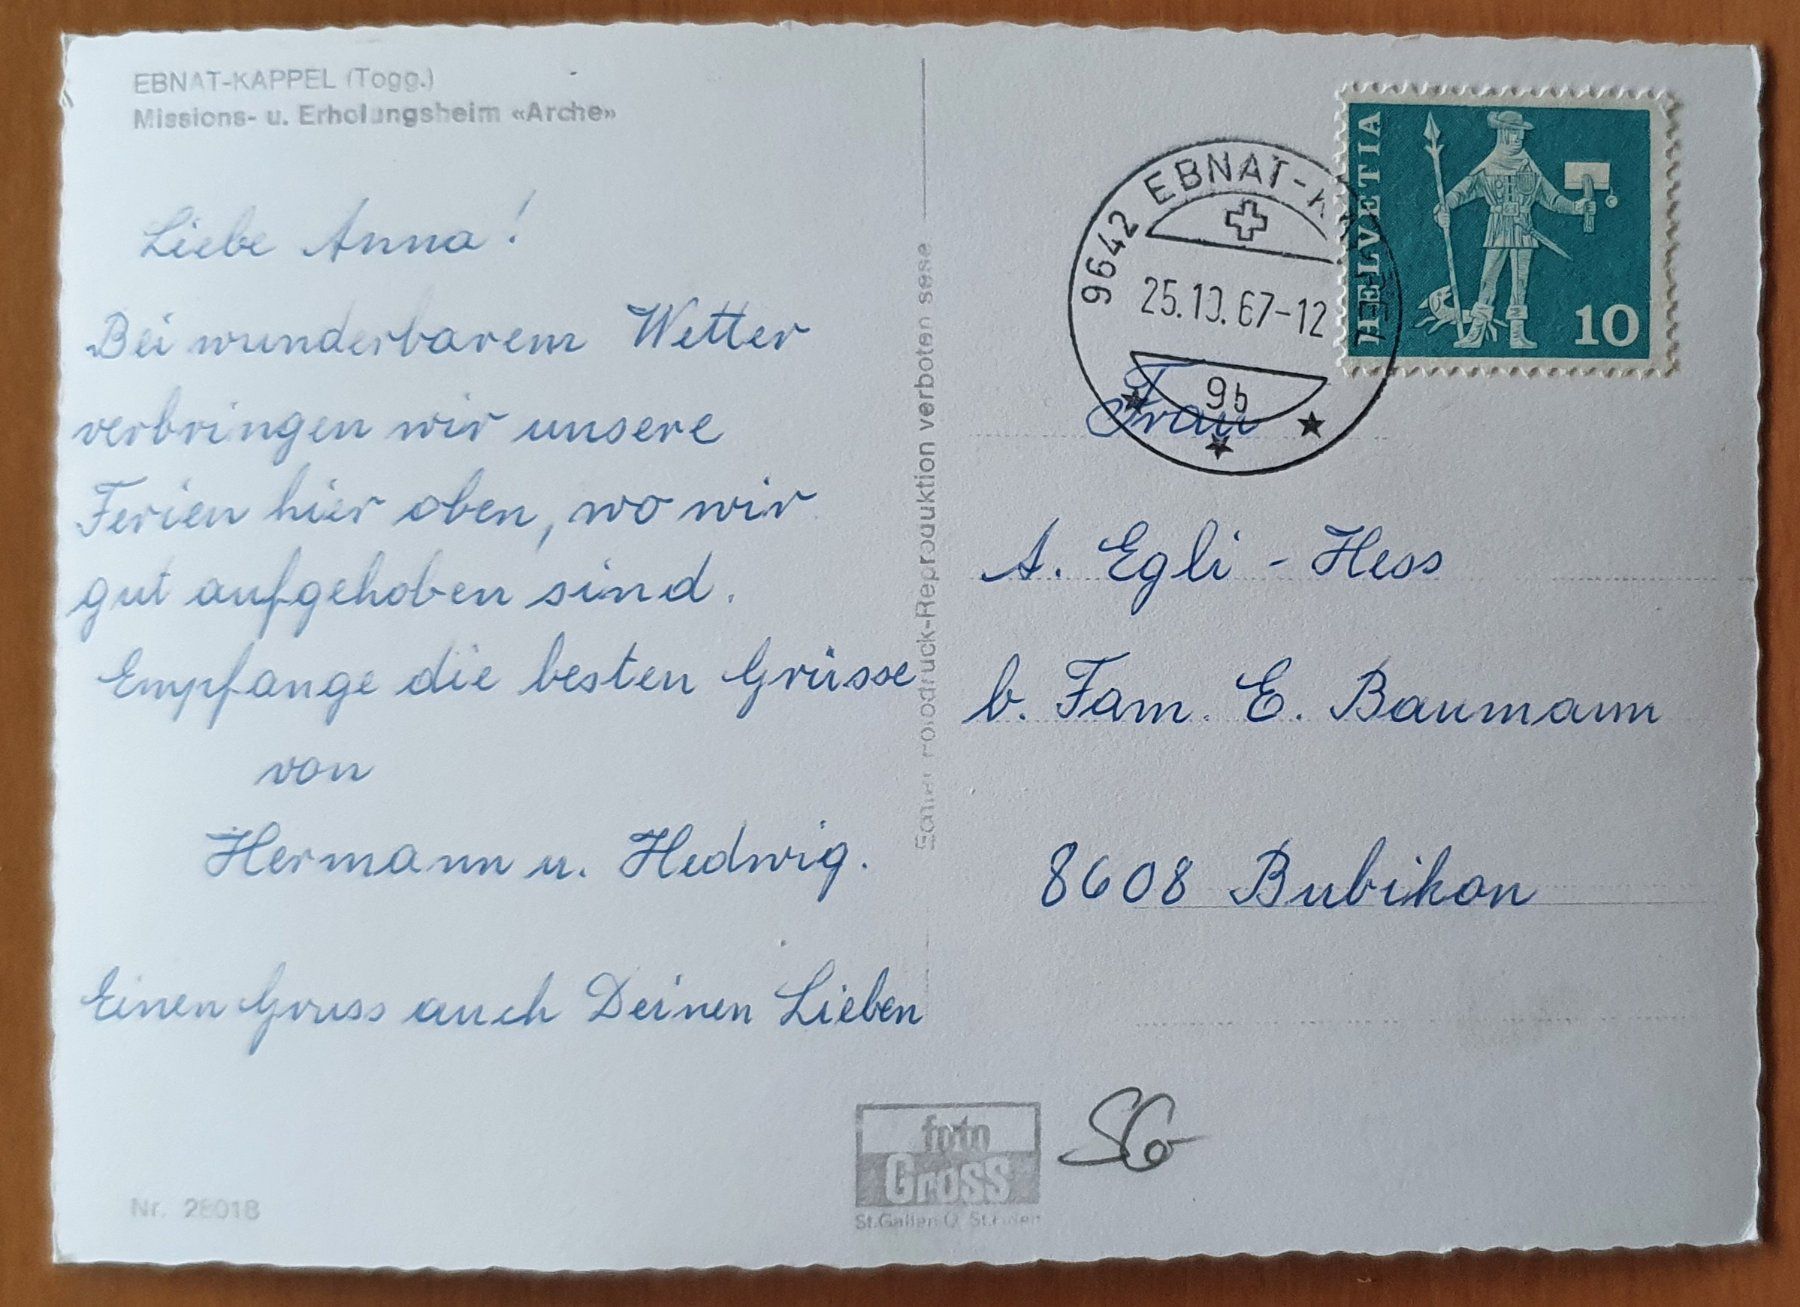 EBNAT-KAPPEL (Togg.)
Missions- u. Erholungsheim «Arche»
Liebe Anna!
Bei wunderbarem Wetter
verbringen wir unsere
Ferien hier oben, wo wir
gut aufgehoben sind.
Empfange die besten Grüsse
von
Hermann u. Hedwig.
Einen Gruss auch Deinen Lieben
Nr. 28018
Fotodruck-Reproduktion verboten
foto
Gross
St.Gallen
SG
HELVETIA
10
9642 EBNAT-KAPPEL
25.10.67-12
9b
Frau
A. Egli-Hess
b. Fam. E. Baumann
8608 Bubikon